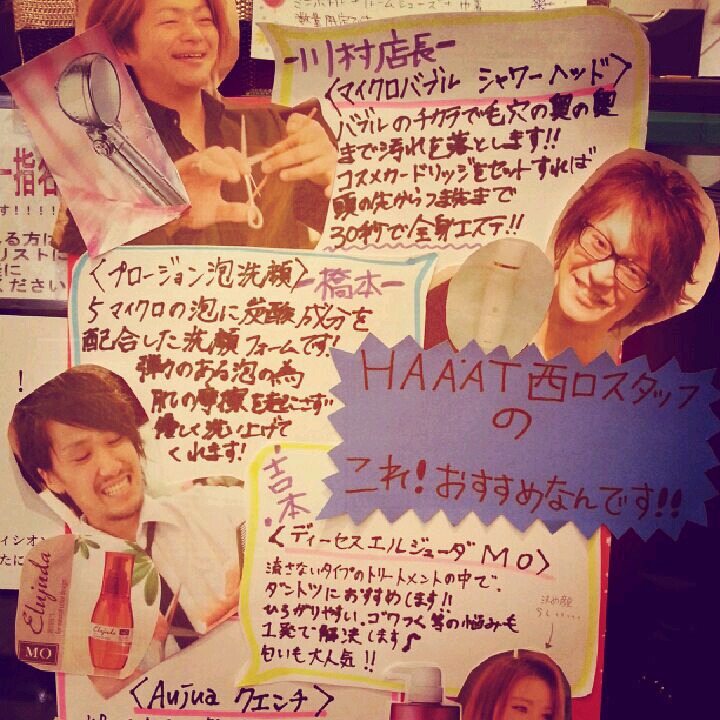 数量限定
-川村店長-
〈マイクロバブル シャワーヘッド〉
バブルのチカラで毛穴の奥の奥
まで汚れを落とします!!
コスメカートリッジをセットすれば
頭の先からつま先まで
30秒で全身エステ!!
指名
す!!!!
る方は
リストに
に
ください
〈プロージョン泡洗顔〉-橋本-
5マイクロの泡に炭酸成分を
配合した洗顔フォームです!
弾力のある泡の為
肌の摩擦を起こさず
優しく洗い上げて
くれます!
HAAAT西口スタッフ
の
これ!おすすめなんです!!
・吉本・
〈ディーセスエルジューダMO〉
流さないタイプのトリートメントの中で、
ダントツにおすすめします!!
ひろがりやすい、ゴワつく等の悩みも
1発で解決します♪
匂いも大人気!!
決め顔
らしい…
Elujuda
MO
〈Aujua クエンチ〉